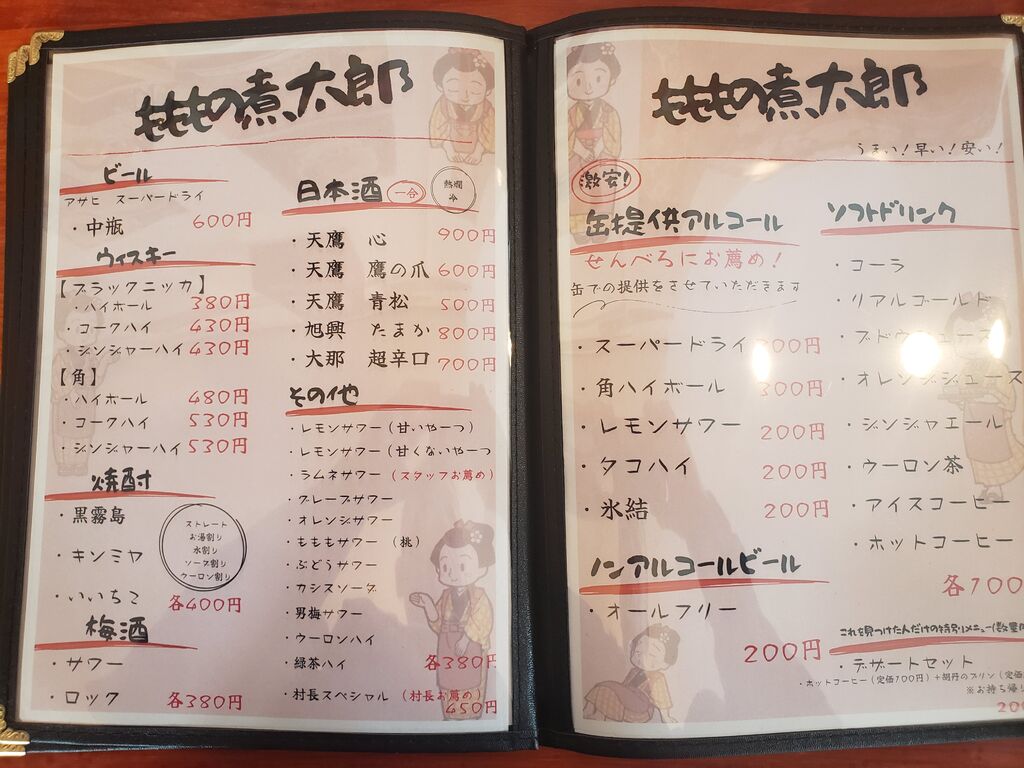 もももの煮太郎
ビール
アサヒ スーパードライ
・中瓶 600円
ウィスキー
【ブラックニッカ】
・ハイボール 380円
・コークハイ 430円
・ジンジャーハイ 430円
【角】
・ハイボール 480円
・コークハイ 530円
・ジンジャーハイ 530円
焼酎
・黒霧島
・キンミヤ
・いいちこ
各400円
ストレート
お湯割り
水割り
ソーダ割り
ウーロン割り
梅酒
・サワー
・ロック 各380円
日本酒 一合
熱燗
冷
・天鷹 心 900円
・天鷹 鷹の爪 600円
・天鷹 青松 500円
・旭興 たまか 800円
・大那 超辛口 700円
その他
・レモンサワー(甘いやーつ)
・レモンサワー(甘くないやーつ
・ラムネサワー(スタッフお薦め)
・グレープサワー
・オレンジサワー
・もももサワー(桃)
・ぶどうサワー
・カシスソーダ
・男梅サワー
・ウーロンハイ
・緑茶ハイ 各380円
・村長スペシャル(村長お薦め)
450円
もももの煮太郎
うまい!早い!安い!
激安!
缶提供アルコール
せんべろにお薦め!
缶での提供をさせていただきます
・スーパードライ 300円
・角ハイボール 300円
・レモンサワー 200円
・タコハイ 200円
・氷結 200円
ノンアルコールビール
・オールフリー
200円
ソフトドリンク
・コーラ
・リアルゴールド
・ブドウジュース
・オレンジジュース
・ジンジャエール
・ウーロン茶
・アイスコーヒー
・ホットコーヒー
各100
これを見つけた人だけの特別メニュー(数量
・デザートセット
・ホットコーヒー(定価100円)+胡丹のプリン(定価
※お持ち帰り
200